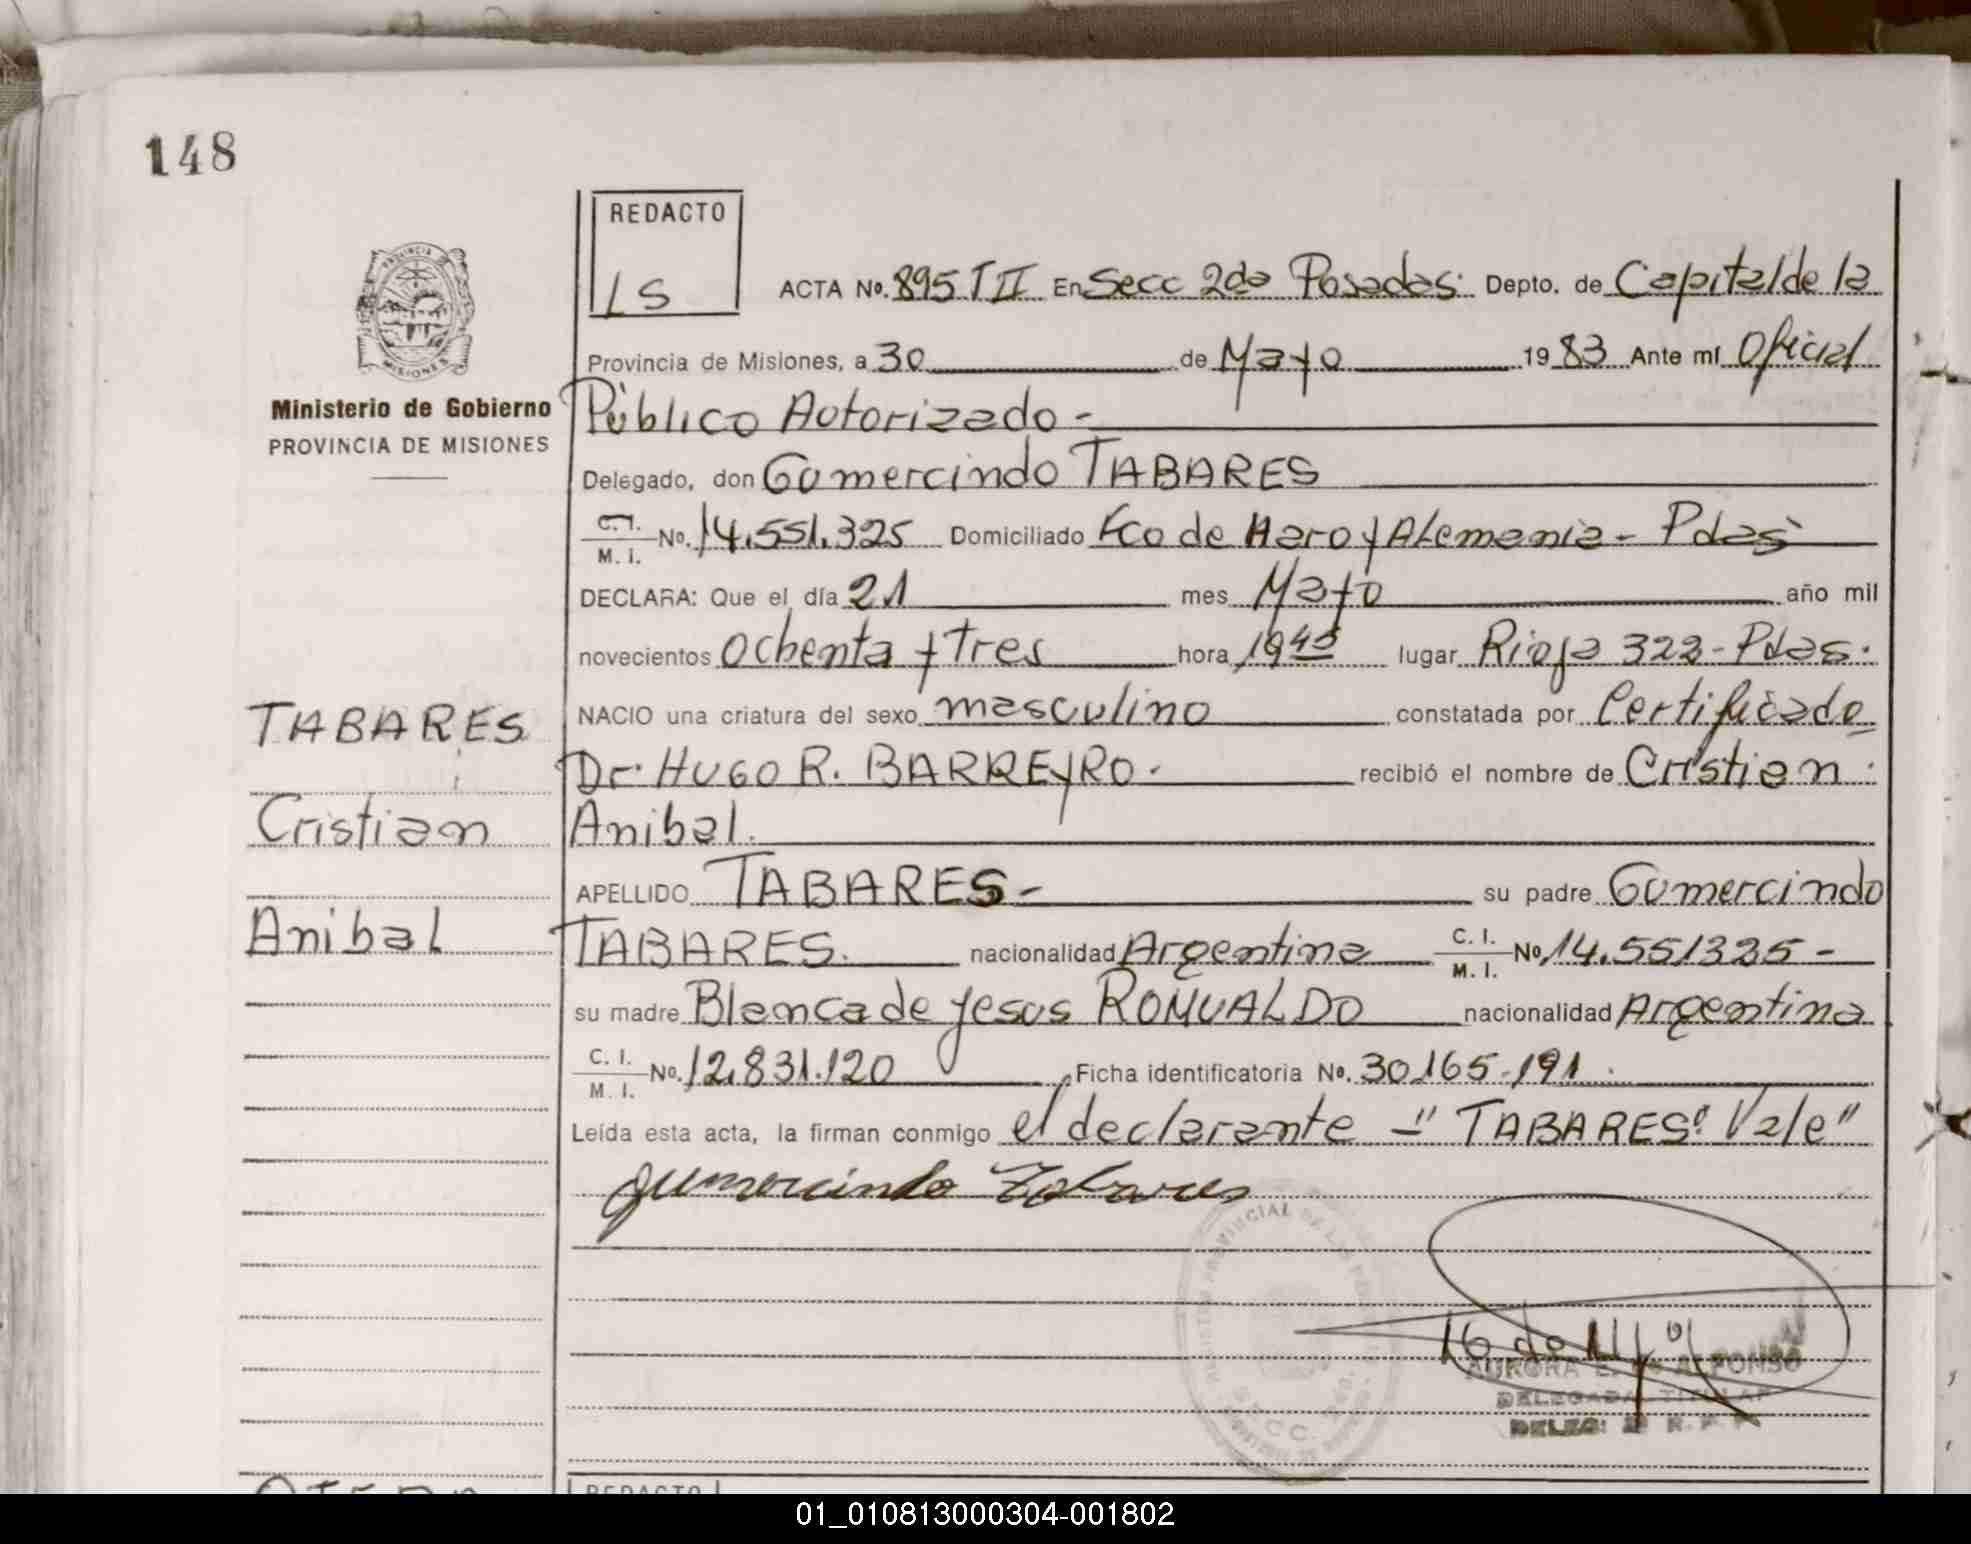 148
REDACTO
LS
ACTA Nº. 895 T II En Secc 2da Posadas. Depto. de Capital de la
Provincia de Misiones, a 30 de Mayo 1983 Ante mí Oficial
Ministerio de Gobierno
PROVINCIA DE MISIONES
Público Autorizado -
Delegado, don Gumercindo TABARES
C. I.
M. I. No. 14.551.325 Domiciliado Fco de Haro y Alemania - Pdas
DECLARA: Que el día 21 mes Mayo año mil
novecientos ochenta y Tres hora 19 45 lugar Rioja 322 - Pdas.
NACIO una criatura del sexo masculino constatada por Certificado
Dr. HUGO R. BARREYRO. recibió el nombre de Cristian
Anibal.
APELLIDO TABARES - su padre Gumercindo
TABARES. nacionalidad Argentina C. I.
M. I. No. 14.551325 -
su madre Blanca de Jesus ROMUALDO nacionalidad Argentina
C. I.
M. I. No. 12.831.120 Ficha identificatoria Nº. 30165-191.
Leída esta acta, la firman conmigo el declarante - "TABARES" Vale"
Gumercindo Tabares
TABARES
Cristian
Anibal
PROVINCIAL DE LAS
SECC. 2da.
AURORA ALFONSO
DELEGADA TITULAR
DELEG:
REDACTO
01_010813000304-001802